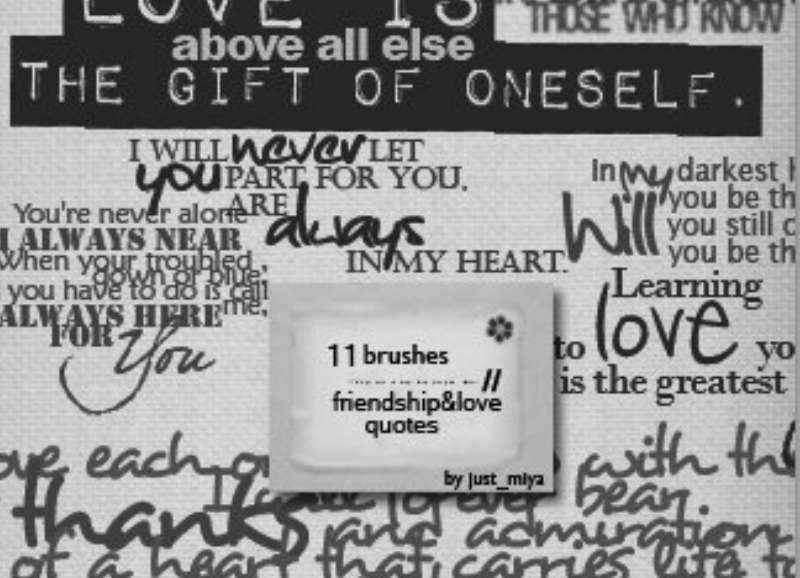 LOVE IS
THOSE WHO KNOW
above all else
THE GIFT OF ONESELF.
I WILL never LET
you PART FOR YOU.
ARE
always
IN MY HEART.
You're never alone
I ALWAYS NEAR
When your troubled,
down or blue,
you have to do is call
me,
ALWAYS HERE
FOR
You
In my darkest
Will you be
you still
you be
Learning
to love
is the greatest
11 brushes
//
friendship&love
quotes
by just_miya
each with
bear.
thanks and admiration
of a heart that carries life